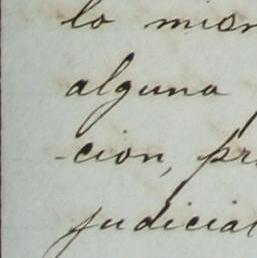 lo mism
alguna
-cion, pr
judicial